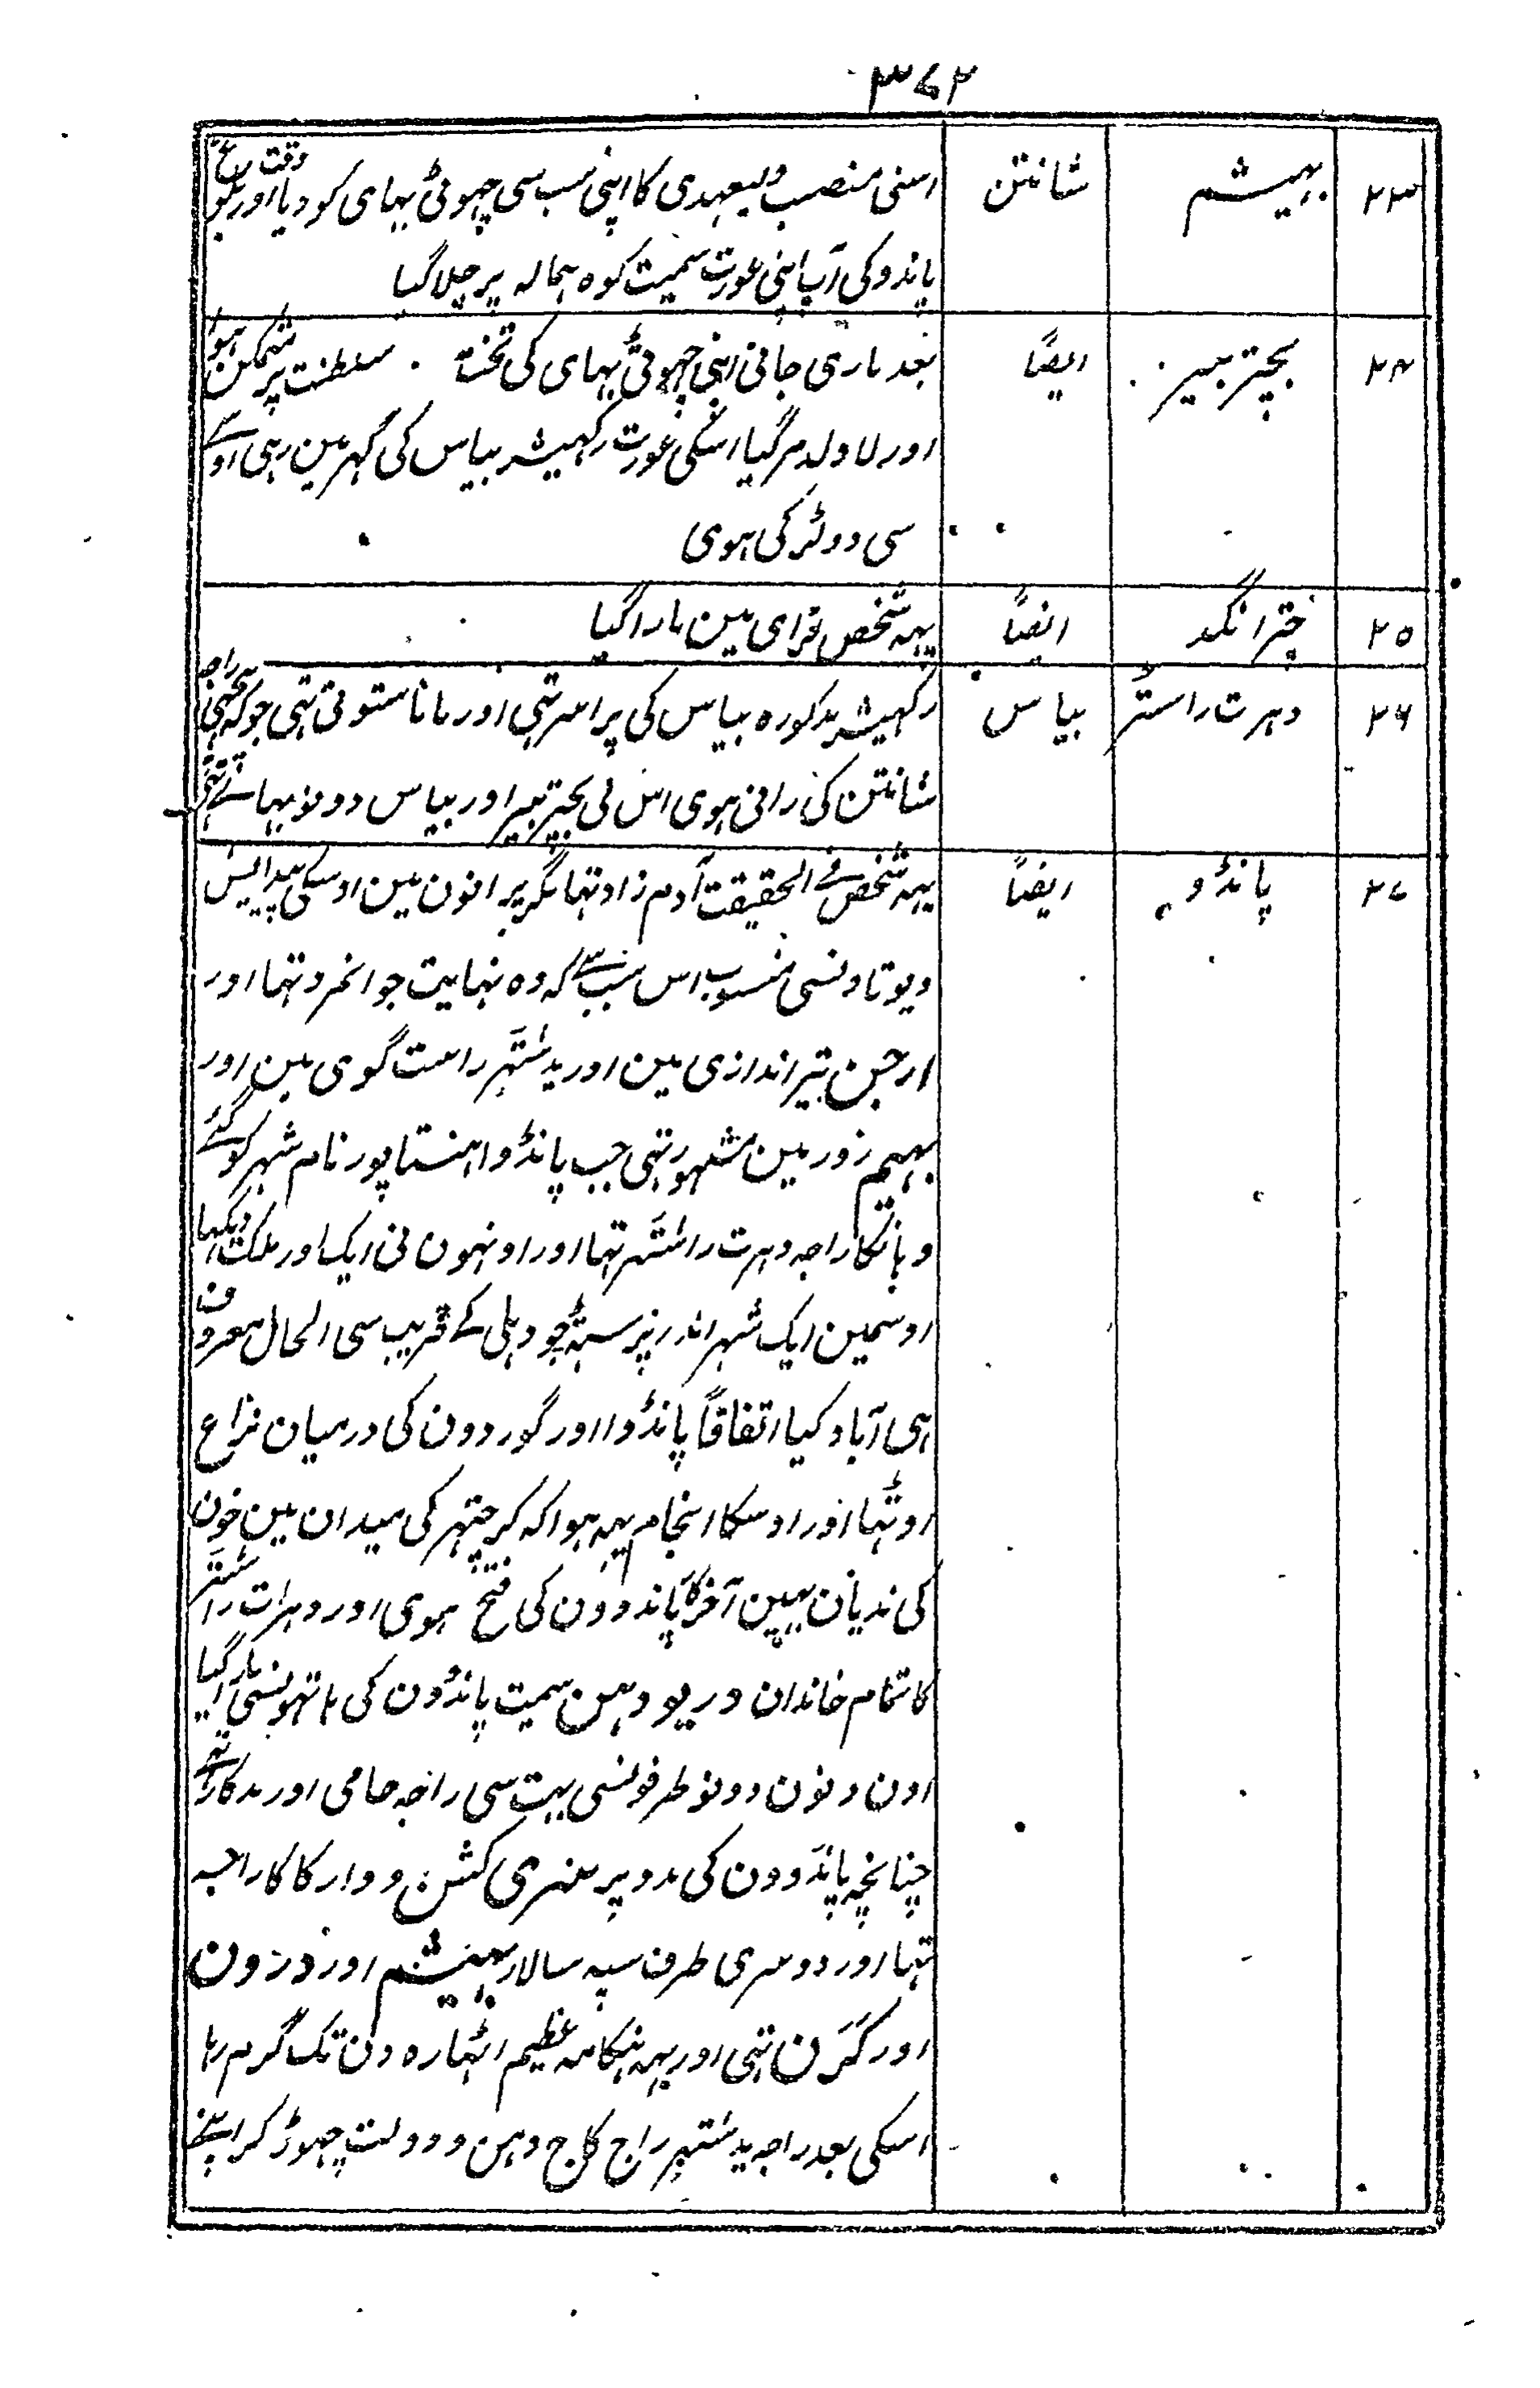 ۳۷۲
۲۳ بہیشم شانتن اسنی منصب ولیعہدی کا اپنی سب سی چہوٹی بہای کو دیا اور وقت
پانڈو کی آپ اپنی عورت سمیت کوہ ہمالہ پر چلا گیا
۲۴ بچتر بیر ایضاً بعد ماری جانی اپنی چہوٹی بہای کی تخت سلطنت پر متمکن ہوا
اور لاولد مر گیا اسکی عورت رکہیشر بیاس کی گہر مین رہی اوس
سی دو لڑکی ہوی
۲۵ چترانگد ایضاً یہہ شخص لڑای مین مارا گیا
۲۶ دہرت راستر بیاس رکہیشر مذکورہ بیاس کی پراسر تہی اور ماتا ستوتی تہی جو کہ پیچہی راجہ
شانتن کی رانی ہوی اس لی بچتر بیر اور بیاس دونو بہای تہی
۲۷ پانڈو ایضاً یہہ شخص فے الحقیقت آدم زاد تہا مگر پرانون مین اوسکی پیدایش
دیوتاونسی منسوب اس سبب سے کہ وہ نہایت جوانمرد تہا اور
ارجن تیر اندازی مین اور یدشتہر راست گوی مین اور
بہیم زور مین مشہور تہی جب پانڈو اہنستاپور نام شہر کو گئے
وہانکا راجہ دہرت راشتر تہا اور اونہون نی ایک اور ملک دیکہا
اوسمین ایک شہر اندرپرستہہ جو دہلی کے قریب سی الحال معروف
ہی آباد کیا اتفاقاً پانڈوا اور گوروون کی درمیان نزاع
اوٹہا اور اوسکا انجام یہہ ہوا کہ کرچہتر کی میدان مین خون
کی ندیان بہین آخر کار پانڈوون کی فتح ہوی اور دہرات راشتر
کا تمام خاندان دریودہن سمیت پانڈون کی ہاتہونسی مارا گیا
اون دنون دونو طرفونسی بہت سی راجہ حامی اور مددکار تہے
چنانچہ پانڈوون کی مدد پر سری کشن دوارکا کا راجہ
تہا اور دوسری طرف سپہ سالار بہیشم اور درون
اور کرن تہی اور یہہ ہنگامہ عظیم اٹہارہ دن تک گرم رہا
اسکی بعد راجہ یدشتہر راج کاج دہن و دولت چہوڑ کر اپنے